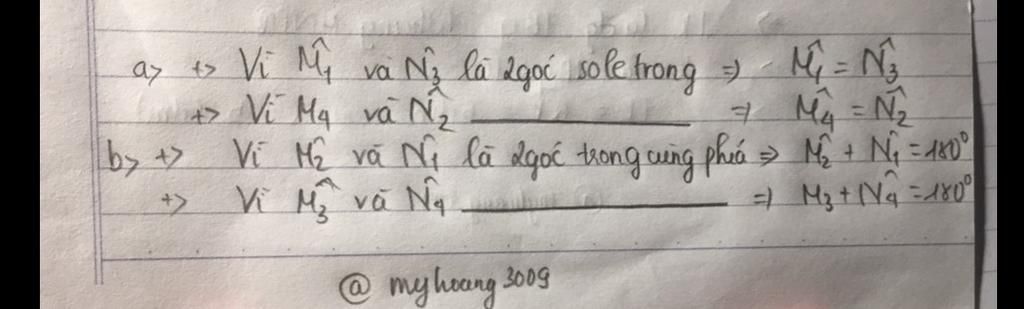 a> +> Vì M̂₁ và N̂₃ là 2góc sole trong => M̂₁ = N̂₃
+> Vì M₄ và N̂₂ ________ => M̂₄ = N̂₂
b> +> Vì M̂₂ và N̂₁ là 2góc trong cùng phiá => M̂₂ + N̂₁ = 180⁰
+> Vì M̂₃ và N̂₄ ________ => M₃ + N̂₄ = 180⁰
@ myhoang3009